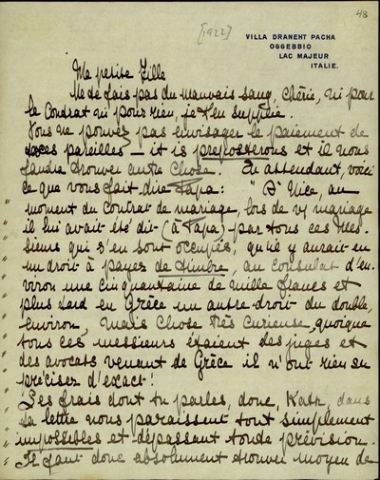 48
[1922]
VILLA DRANEHT PACHA
OGGEBBIO
LAC MAJEUR
ITALIE.
Ma petite Fille
Ne te fais pas du mauvais sang, Chérie, ni pour
le Contrat ni pour rien, je t'en supplie.
Vous ne pouvez pas envisager le paiement de
taxes pareilles — it is preposterous et il vous
faudra trouver autre chose. En attendant, voici
ce que vous fait dire Papa : "A Nice, au
moment du Contrat de mariage, lors de votre mariage
il lui avait été dit (à Papa) par tous ces Mes-
sieurs qui s'en sont occupés, qu'il y aurait eu
un droit à payer de timbre, au consulat d'en-
viron une cinquantaine de mille francs et
plus tard en Grèce un autre droit du double,
environ, mais chose très curieuse, quoique
tous ces messieurs étaient des juges et
des avocats venant de Grèce il n'ont rien su
préciser d'exact !
Ces frais dont tu parles, donc, Kath, dans
ta lettre nous paraissent tout simplement
impossibles et dépassant toute prévision.
Il faut donc absolument trouver moyen de